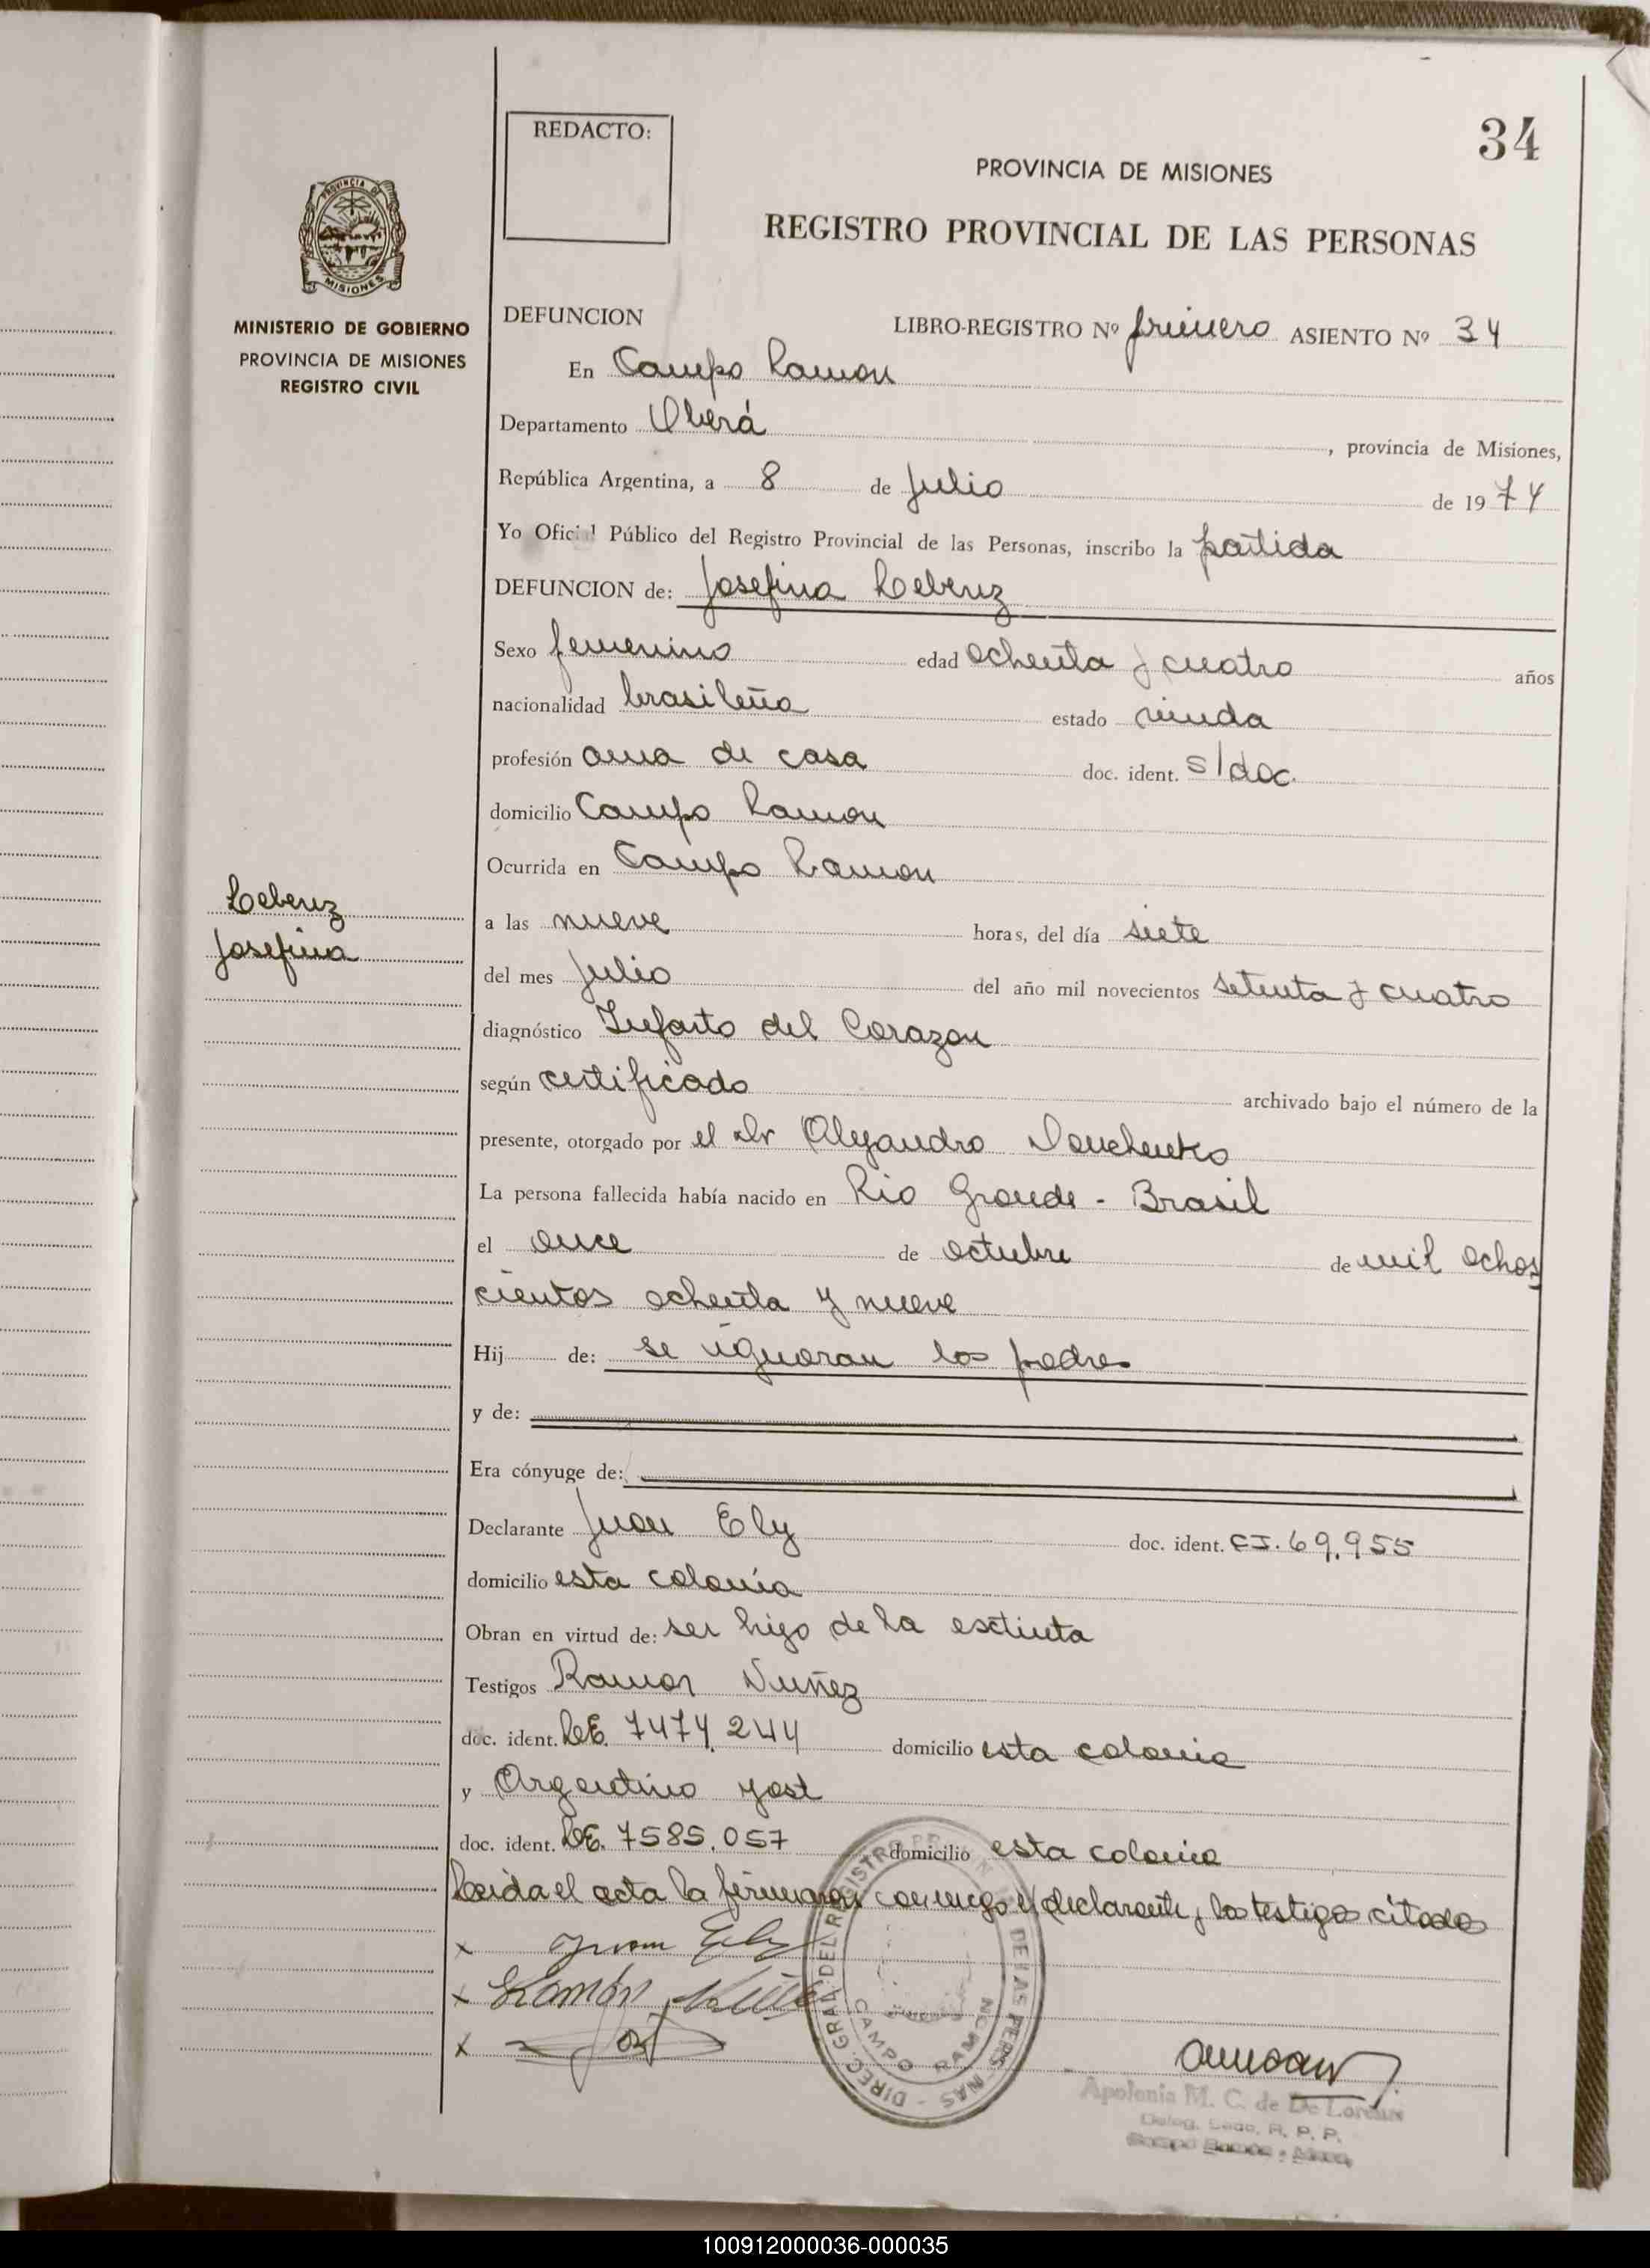 34
REDACTO:
PROVINCIA DE MISIONES
REGISTRO PROVINCIAL DE LAS PERSONAS
PROVINCIA DE
MISIONES
MINISTERIO DE GOBIERNO
PROVINCIA DE MISIONES
REGISTRO CIVIL
DEFUNCION LIBRO-REGISTRO Nº primero ASIENTO Nº 34
En Campo Ramon
Departamento Oberá, provincia de Misiones,
República Argentina, a 8 de Julio de 1974
Yo Oficial Público del Registro Provincial de las Personas, inscribo la partida
DEFUNCION de: Josefina Leberuz
Sexo femenino edad ochenta y cuatro años
nacionalidad brasileña estado viuda
profesión ama de casa doc. ident. s/doc.
domicilio Campo Ramon
Ocurrida en Campo Ramon
Leberuz
Josefina
a las nueve horas, del día siete
del mes Julio del año mil novecientos setenta y cuatro
diagnóstico Infarto del Corazon
según certificado archivado bajo el número de la
presente, otorgado por el Dr Alejandro
La persona fallecida había nacido en Rio Grande - Brasil
el once de octubre de mil ochos
cientos ochenta y nueve
Hij de: se ignoran los padres
y de:
Era cónyuge de:
Declarante Juan Ely doc. ident. CI. 69.955
domicilio esta colonia
Obran en virtud de: ser hijo de la extinta
Testigos Ramon Nuñez
doc. ident. LE. 7474.244 domicilio esta colonia
y Argentino Yost
doc. ident. LE. 7585.057 domicilio esta colonia
Leida el acta la firmaron conmigo el declarante y los testigos citados
x Juan Ely
x Ramón
x
DIREC. GRAL. DEL REGISTRO DE LAS PERSONAS
CAMPO RAMON
Apolonia M. C. de De Lorenz
Deleg. R. P. P.
Campo Ramon
100912000036-000035